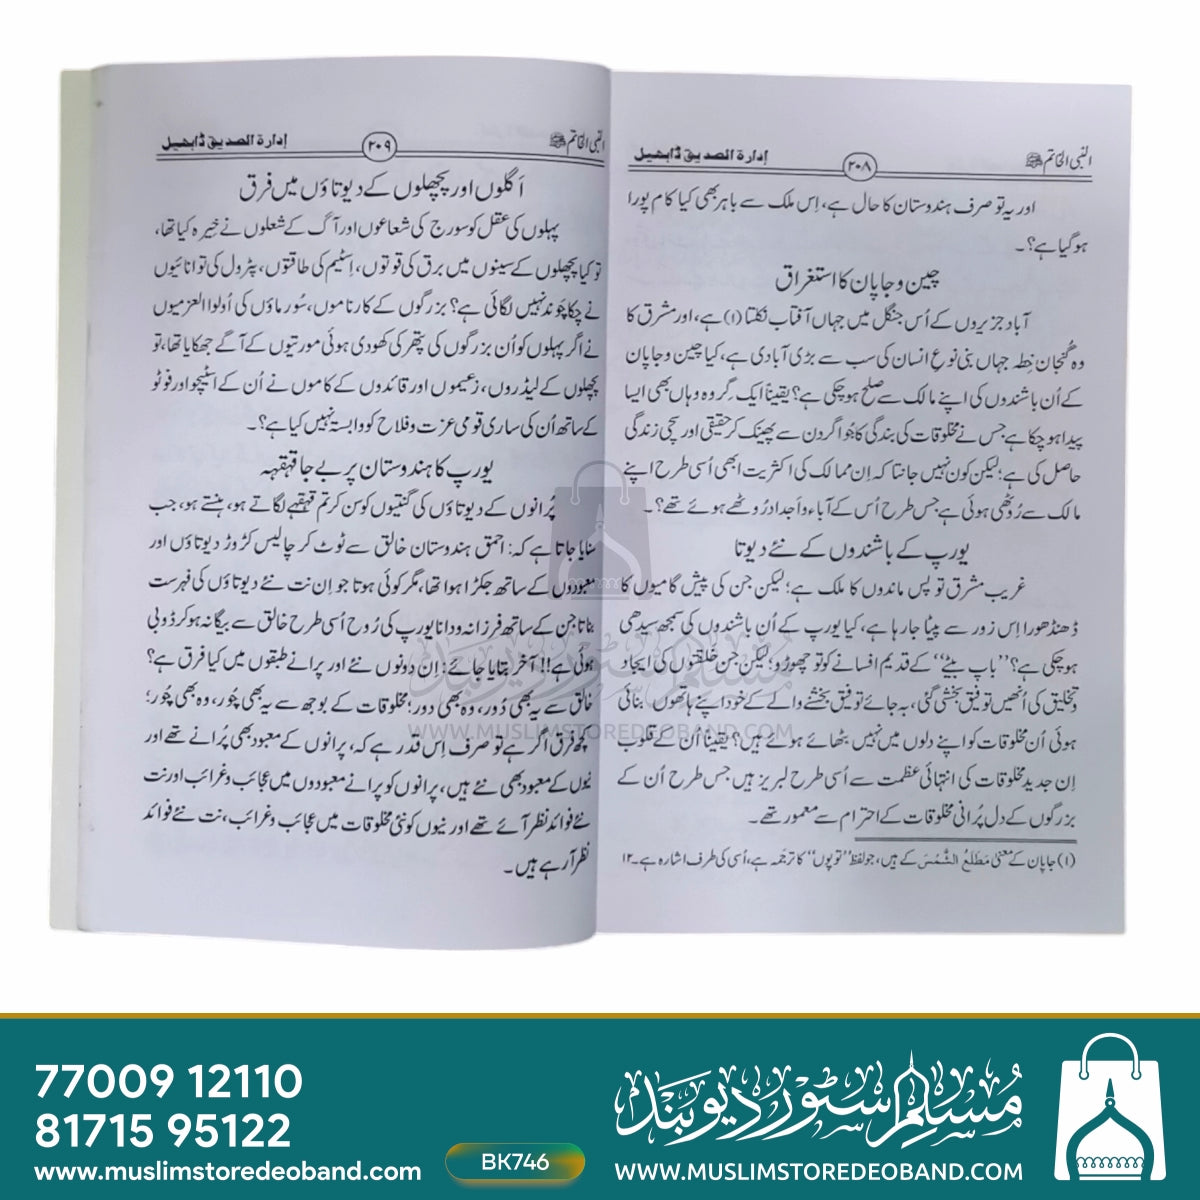 النبی الخاتم ﷺ ۲۰۸ إدارة الصديق ڈابھیل
اور یہ تو صرف ہندوستان کا حال ہے، اِس ملک سے باہر بھی کیا کام پورا
ہو گیا ہے؟۔
چین و جاپان کا استغراق
آباد جزیروں کے اُس جنگل میں جہاں آفتاب نکلتا (۱) ہے، اور مشرق کا
وہ گنجان خِطہ جہاں بنی نوعِ انسان کی سب سے بڑی آبادی ہے، کیا چین و جاپان
کے اُن باشندوں کی اپنے مالک سے صلح ہو چکی ہے؟ یقیناً ایک گروہ وہاں بھی ایسا
پیدا ہو چکا ہے جس نے مخلوقات کی بندگی کا جُوا گردن سے پھینک کر حقیقی اور سچی زندگی
حاصل کی ہے؛ لیکن کون نہیں جانتا کہ اِن ممالک کی اکثریت ابھی اُسی طرح اپنے
مالک سے رُوٹھی ہوئی ہے جس طرح اُس کے آباء و اَجداد رُوٹھے ہوئے تھے؟۔
یورپ کے باشندوں کے نئے دیوتا
غریب مشرق تو پس ماندوں کا ملک ہے؛ لیکن جن کی پیش گامیوں کا
ڈھنڈھورا اِس زور سے پیٹا جا رہا ہے، کیا یورپ کے اُن باشندوں کی سمجھ سیدھی
ہو چکی ہے؟ ”باپ بیٹے“ کے قدیم افسانے کو تو چھوڑو؛ لیکن جن خلقتوں کی ایجاد
و تخلیق کی اُنھیں توفیق بخشی گئی، بہ جائے توفیق بخشنے والے کے خود اپنے ہاتھوں بنائی
ہوئی اُن مخلوقات کو اپنے دلوں میں نہیں بٹھائے ہوئے ہیں؟ یقیناً اُن کے قلوب
اِن جدید مخلوقات کی انتہائی عظمت سے اُسی طرح لبریز ہیں جس طرح اُن کے
بزرگوں کے دل پُرانی مخلوقات کے احترام سے معمور تھے۔
(۱) جاپان کے معنیٰ مَطْلَعُ الشَّمْسْ کے ہیں، جو لفظ ”توپون“ کا ترجمہ ہے، اُسی کی طرف اشارہ ہے۔ ۱۲
النبی الخاتم ﷺ ۲۰۹ إدارة الصديق ڈابھیل
اَگلوں اور پچھلوں کے دیوتاؤں میں فرق
پہلوں کی عقل کو سورج کی شعاعوں اور آگ کے شعلوں نے خیرہ کیا تھا،
تو کیا پچھلوں کے سینوں میں برق کی قوتوں، اِسٹیم کی طاقتوں، پٹرول کی توانائیوں
نے چکا چَوند نہیں لگائی ہے؟ بزرگوں کے کارناموں، سُورماؤں کی اُولوا العزمیوں
نے اگر پہلوں کو اُن بزرگوں کی پتھر کی کھودی ہوئی مورتیوں کے آگے جھکایا تھا، تو
پچھلوں کے لیڈروں، زعیموں اور قائدوں کے کاموں نے اُن کے اسٹیچو اور فوٹو
کے ساتھ اُن کی ساری قومی عزت و فلاح کو وابستہ نہیں کیا ہے؟۔
یورپ کا ہندوستان پر بے جا قہقہہ
پُرانوں کے دیوتاؤں کی گنتیوں کو سن کر تم قہقہے لگاتے ہو، ہنستے ہو، جب
سنایا جاتا ہے کہ: احمق ہندوستان خالق سے ٹوٹ کر چالیس کڑوڑ دیوتاؤں اور
معبودوں کے ساتھ جکڑا ہوا تھا، مگر کوئی ہوتا جو اِن نت نئے دیوتاؤں کی فہرست
بناتا جن کے ساتھ فرزانہ و دانا یورپ کی رُوح اُسی طرح خالق سے بیگانہ ہو کر ڈوبی
ہوئی ہے!! آخر بتایا جائے: اِن دونوں نئے اور پرانے طبقوں میں کیا فرق ہے؟
خالق سے یہ بھی دُور، وہ بھی دور؛ مخلوقات کے بوجھ سے یہ بھی چُور، وہ بھی چُور؛
کچھ فرق اگر ہے تو صرف اِس قدر ہے کہ، پرانوں کے معبود بھی پُرانے تھے اور
نیوں کے معبود بھی نئے ہیں، پرانوں کو پرانے معبودوں میں عجائب و غرائب اور نت
نئے فوائد نظر آئے تھے اور نیوں کو نئی مخلوقات میں عجائب و غرائب، نت نئے فوائد
نظر آ رہے ہیں۔
مسلم سٹور دیوبند
WWW.MUSLIMSTOREDEOBAND.COM
77009 12110
81715 95122
www.muslimstoredeoband.com
BK746
مسلم سٹور دیوبند
WWW.MUSLIMSTOREDEOBAND.COM